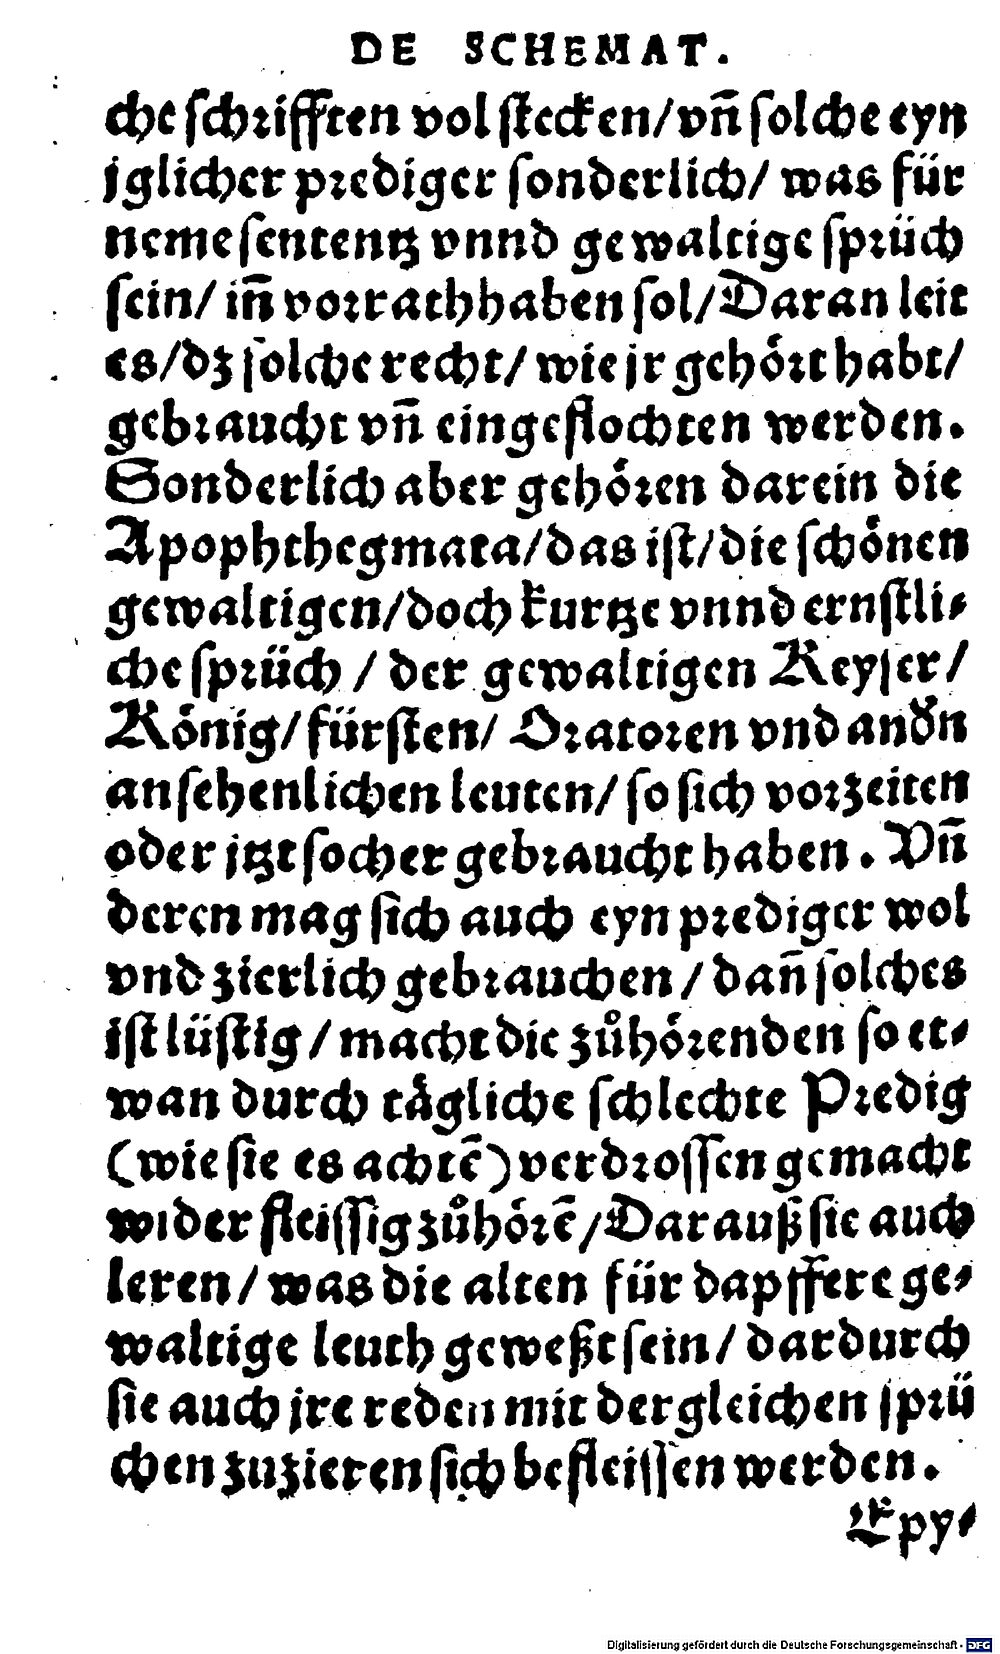 DE SCHEMAT.
che schrifften vol stecken/vñ solche eyn
jglicher prediger sonderlich/ was für
neme sententz vnnd gewaltige sprüch
sein/ iñ vorrath haben sol/Daran leit
es/dz solche recht/ wie jr gehört habt/
gebraucht vñ eingeflochten werden.
Sonderlich aber gehören darein die
Apophthegmata/das ist/die schönen
gewaltigen/doch kurtze vnnd ernstli-
che sprüch / der gewaltigen Keyser/
König/fürsten/ Oratoren vnd andn̄
ansehenlichen leuten/ so sich vorzeiten
oder jtzt socher gebraucht haben. Vñ
deren mag sich auch eyn prediger wol
vnd zierlich gebrauchen / dañ solches
ist lüstig / macht die zůhörenden so et-
wan durch tägliche schlechte Predig
(wie sie es achtē) verdrossen gemacht
wider fleissig zůhörē/Darauß sie auch
leren/ was die alten für dapffere ge-
waltige leuth geweßt sein/ dardurch
sie auch jre reden mit dergleichen sprü
chen zuzieren sich befleissen werden.
Epy-
Digitalisierung gefördert durch die Deutsche Forschungsgemeinschaft - DFG